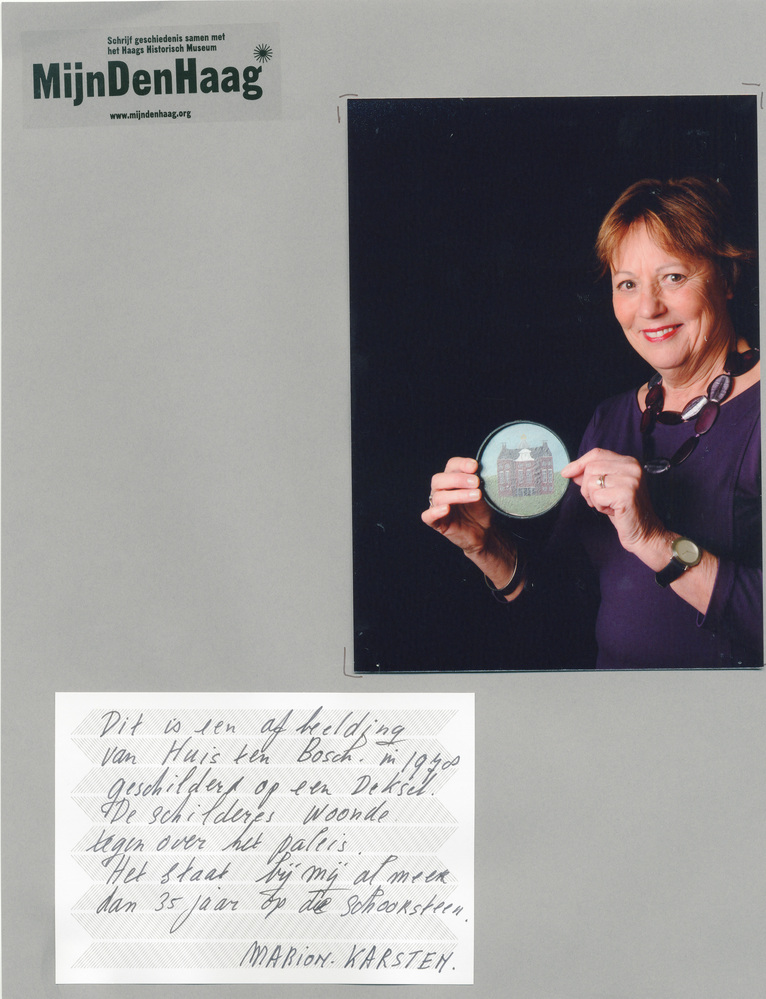 Schrijf geschiedenis samen met
het Haags Historisch Museum
MijnDenHaag
www.mijndenhaag.org
Dit is een afbeelding
van Huis ten Bosch. in 1978
geschilderd op een Deksel.
De schilderes woonde
tegen over het paleis.
Het staat bij mij al meer
dan 35 jaar op de schoorsteen.
MARION. KARSTEN.